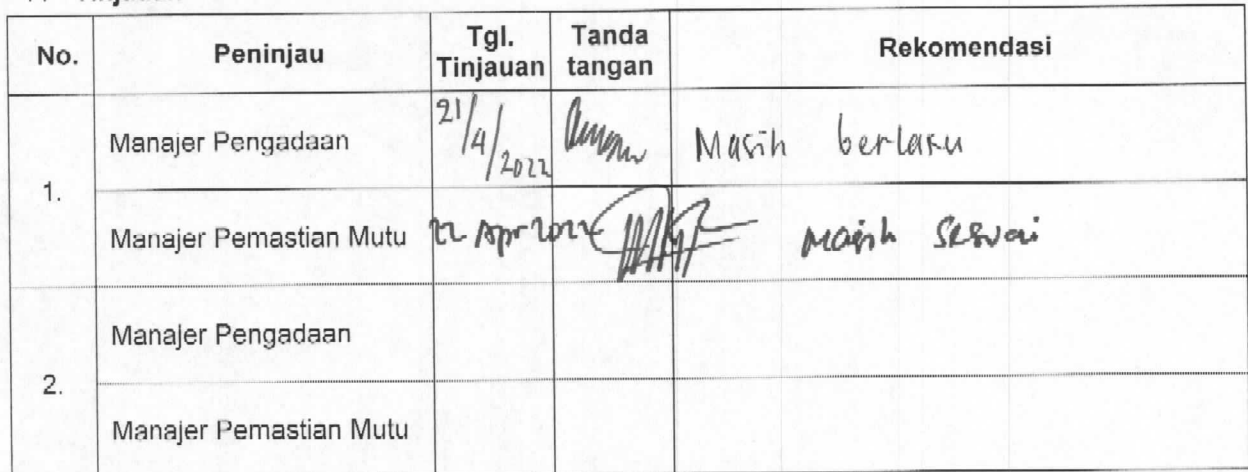 No. Peninjau Tgl. Tinjauan Tanda tangan Rekomendasi
Manajer Pengadaan 21/4/2022 Masih berlaku
1.
Manajer Pemastian Mutu 22 Apr 2022 Masih sesuai
Manajer Pengadaan
2.
Manajer Pemastian Mutu